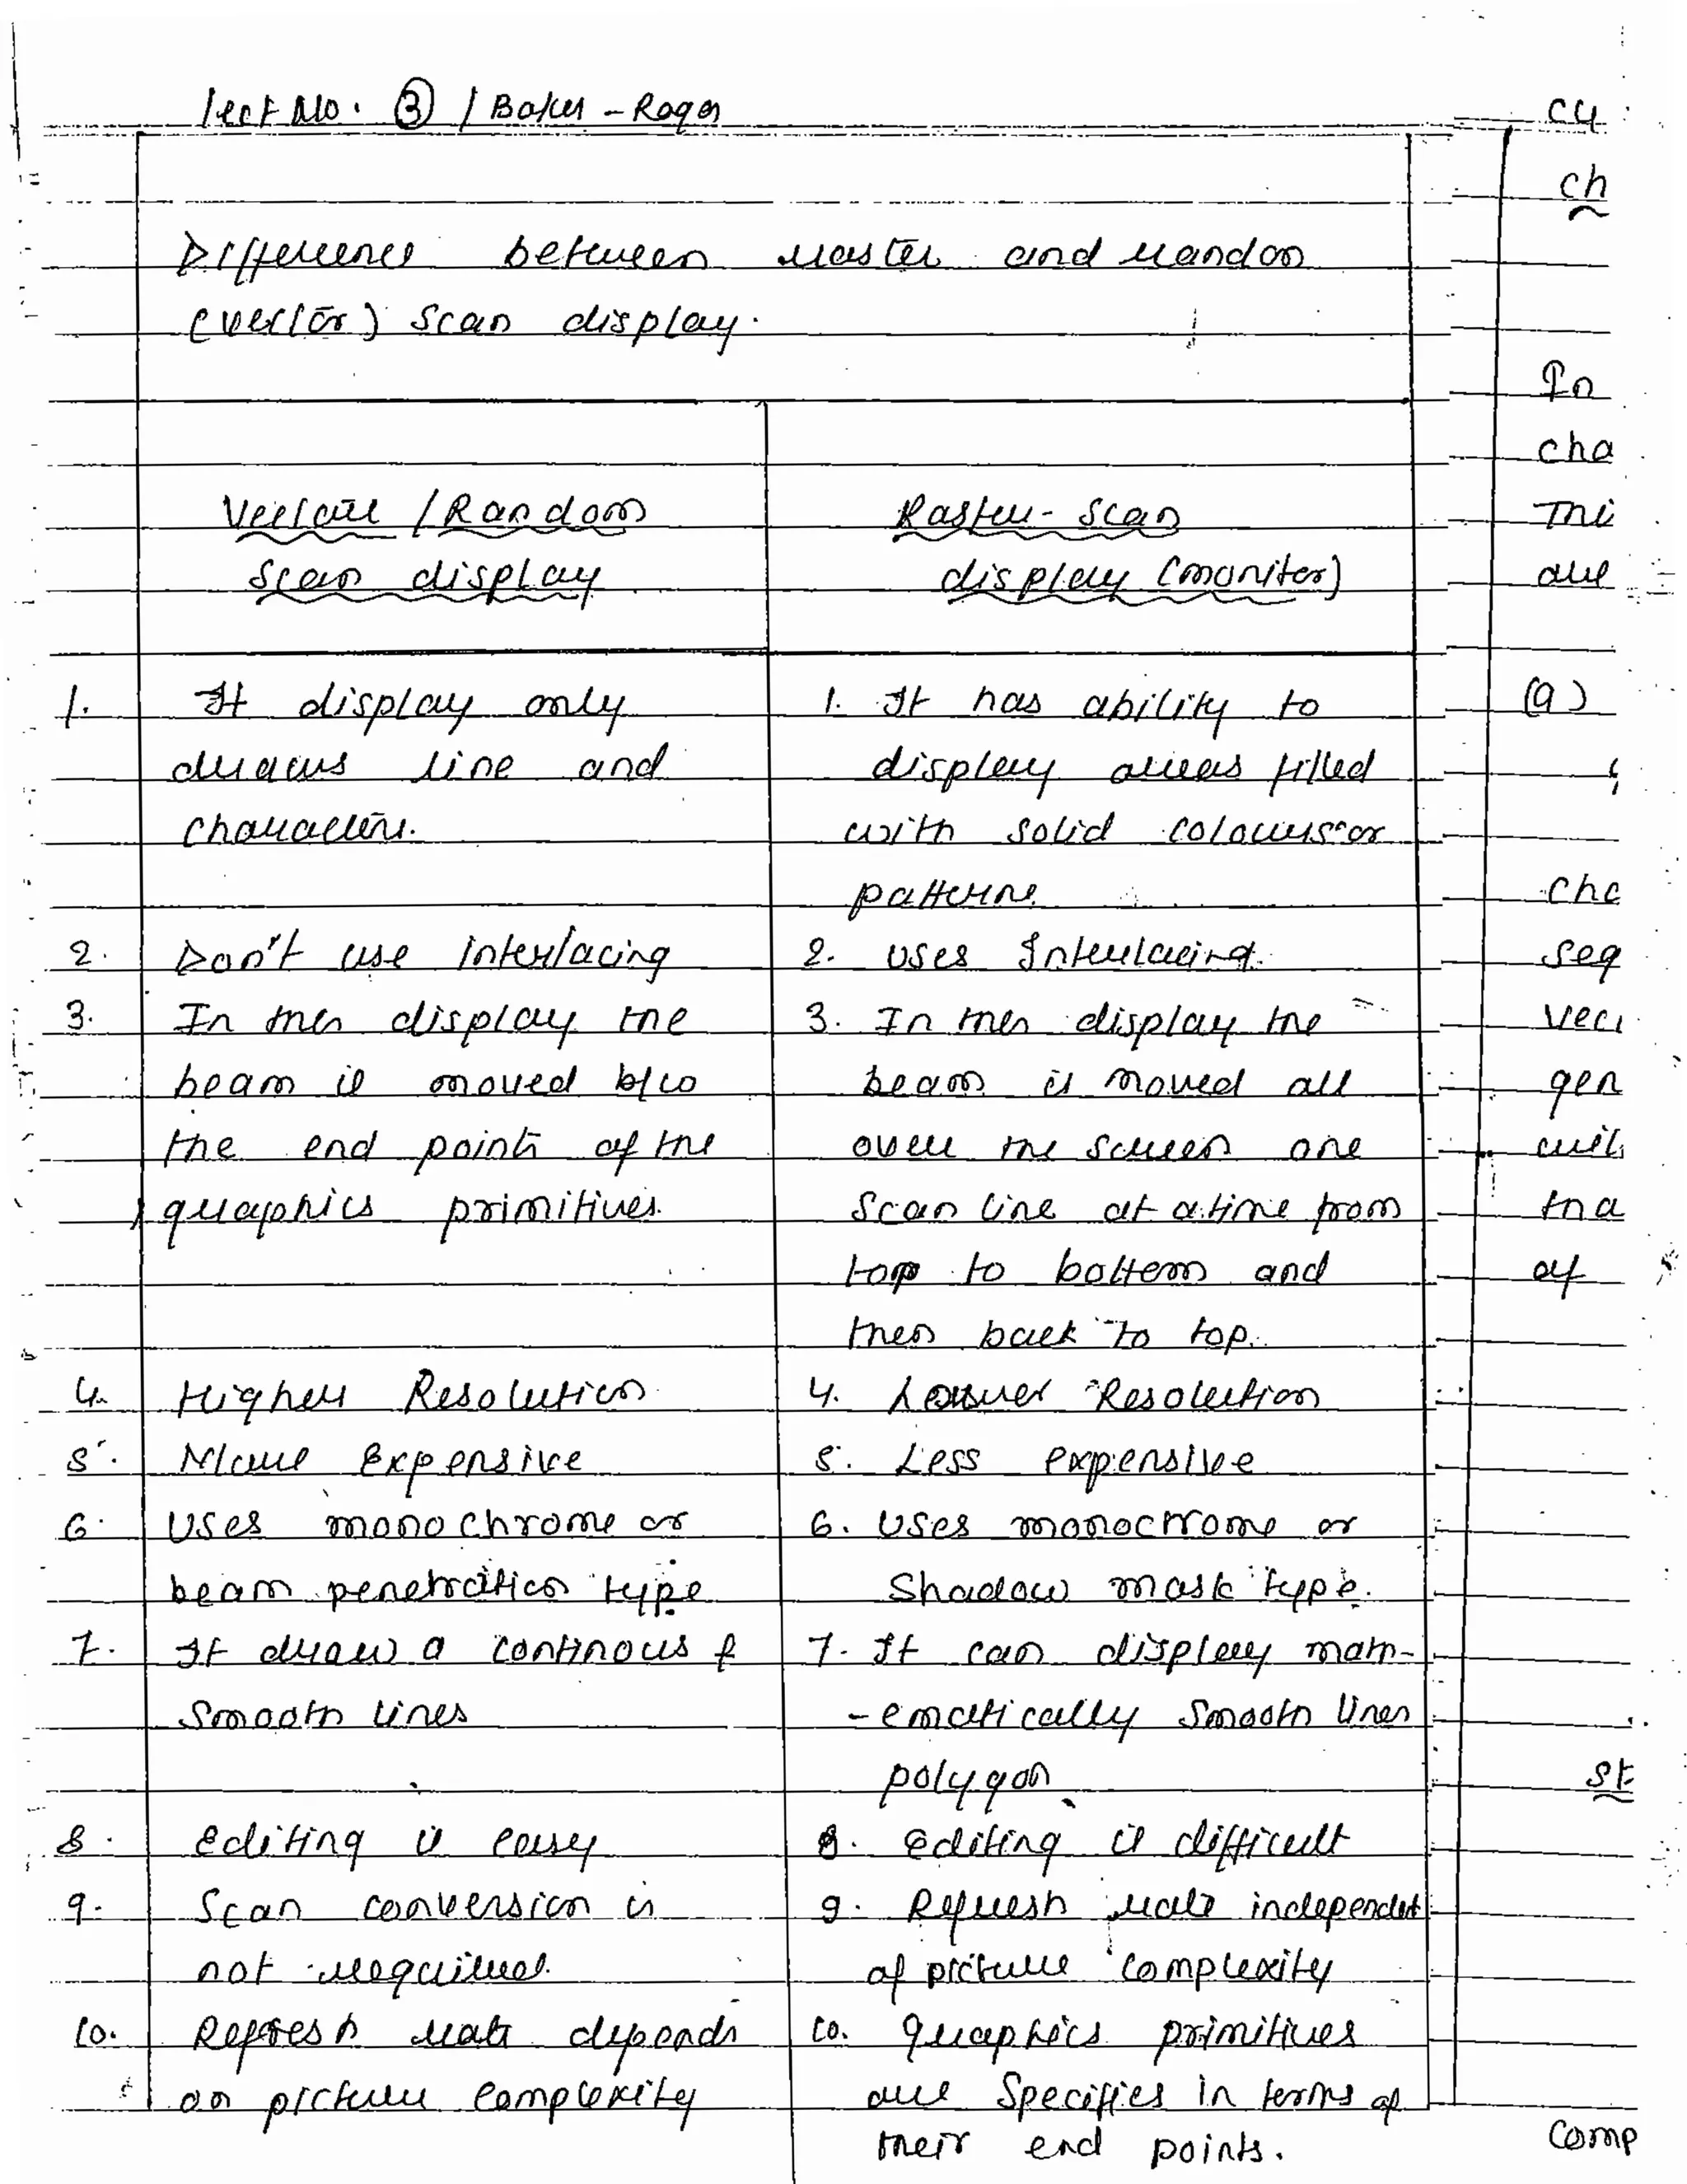 Lect No. ③ / Baker - Roger
Difference between raster and random
(vector) Scan display.
Vector / Random
Scan display
Raster - Scan
display (moniter)
1. It display only
draws line and
characters.
2. Don't use interlacing
3. In this display the
beam is moved b/w
the end points of the
graphics primitives.
4. Higher Resolution
5. More Expensive
6. Uses monochrome or
beam penetration type
7. It draw a continous &
Smooth lines
8. Editing is easy
9. Scan conversion is
not required.
10. Refresh rate depends
on picture complexity
1. It has ability to
display areas filled
with solid colours or
patterns.
2. Uses Interlacing.
3. In this display the
beam is moved all
over the screen one
Scan line at a time from
top to bottom and
then back to top.
4. Lower Resolution
5. Less expensive
6. Uses monocrome or
Shadow mask type.
7. It can display math-
-ematically Smooth lines
polygon
8. Editing is difficult
9. Refresh rate independet
of picture complexity
10. graphics primitives
are Specifies in terms of
their end points.
ch
In
cha
are
(a)
cha
seq
gen
of
st
comp